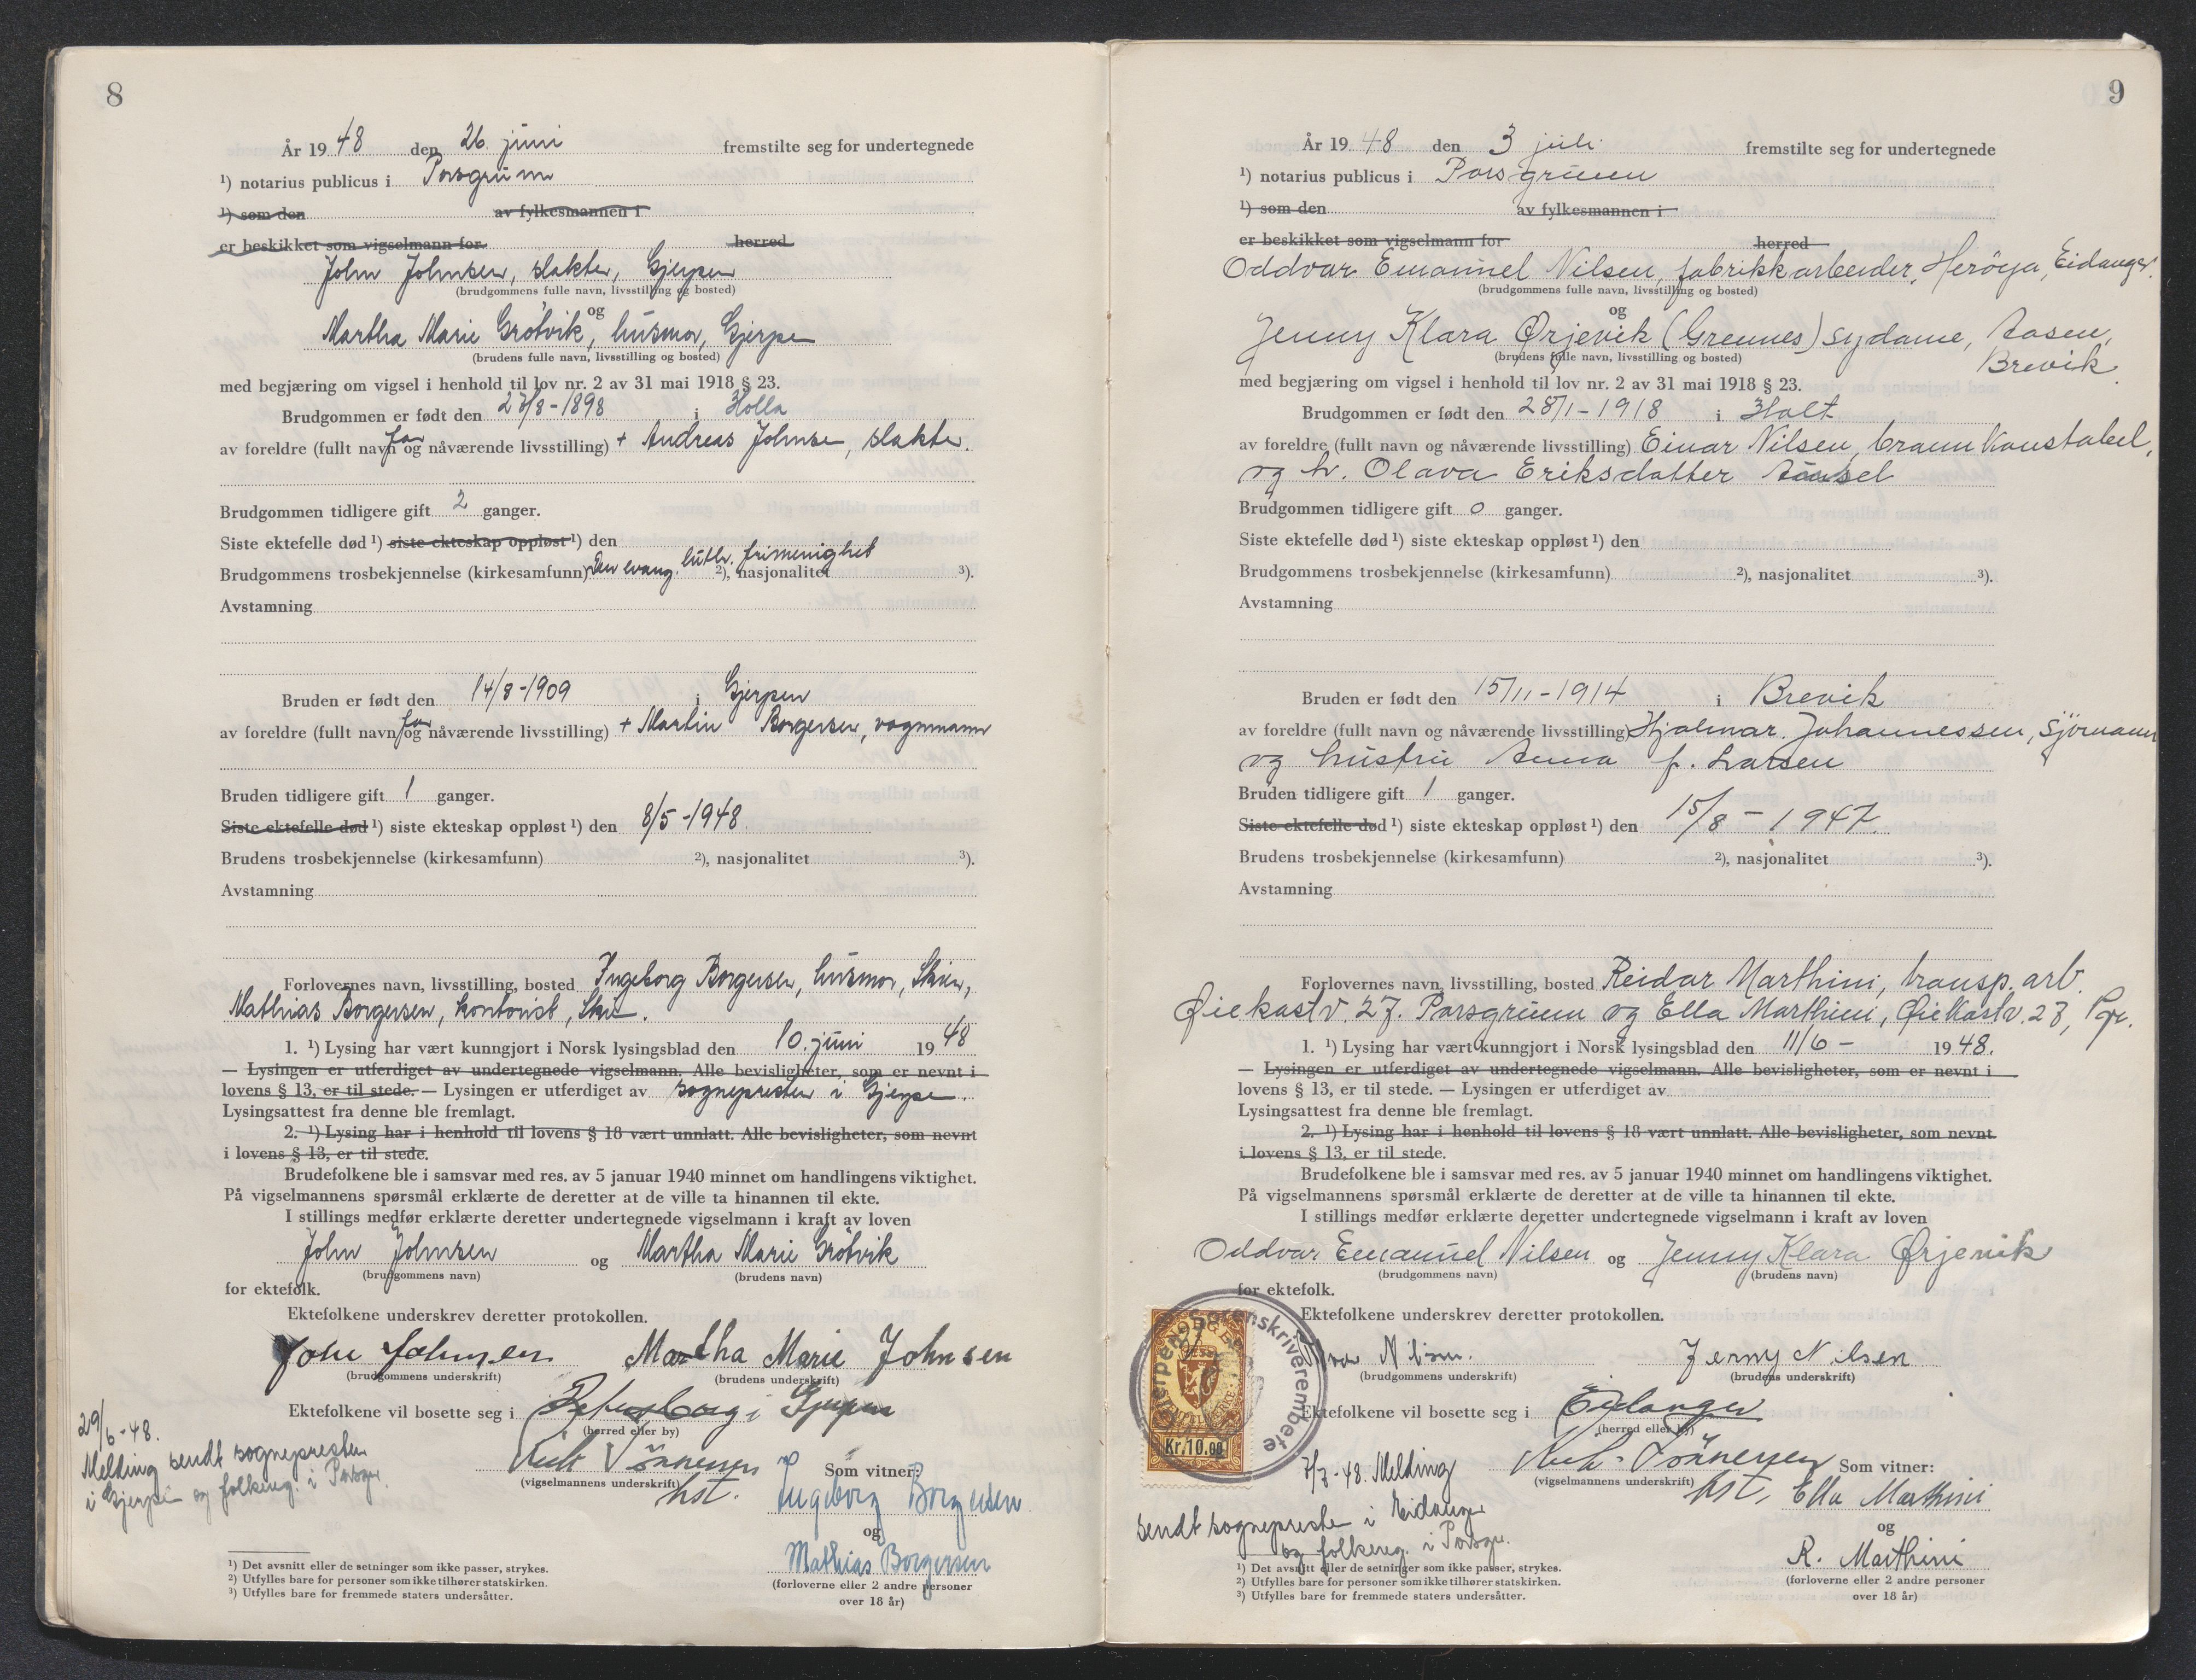 8
År 1948 den 26. juni fremstilte seg for undertegnede
¹) notarius publicus i Porsgrunn
¹) som den av fylkesmannen i
er beskikket som vigselmann for herred
John Johnsen, slakter, Gjerpen
(brudgommens fulle navn, livsstilling og bosted)
og
Martha Marie Grötvik, husmor, Gjerpen
(brudens fulle navn, livsstilling og bosted)
med begjæring om vigsel i henhold til lov nr. 2 av 31 mai 1918 § 23.
Brudgommen er født den 27/8-1898 i Holla
far
av foreldre (fullt navn og nåværende livsstilling) + Andreas Johnsen, slakter.
Brudgommen tidligere gift 2 ganger.
Siste ektefelle død ¹) siste ekteskap oppløst ¹) den
Brudgommens trosbekjennelse (kirkesamfunn) Den evang. luth. frimenighet ²), nasjonalitet ³).
Avstamning
Bruden er født den 14/8-1909 i Gjerpen
far
av foreldre (fullt navn og nåværende livsstilling) + Martin Borgersen, vognmann
Bruden tidligere gift 1 ganger.
Siste ektefelle død ¹) siste ekteskap oppløst ¹) den 8/5-1948.
Brudens trosbekjennelse (kirkesamfunn) ²), nasjonalitet ³).
Avstamning
Forlovernes navn, livsstilling, bosted Ingeborg Borgersen, husmor, Skien,
Mathias Borgersen, kontorist, Skien.
1. ¹) Lysing har vært kunngjort i Norsk lysingsblad den 10. juni 1948
— Lysingen er utferdiget av undertegnede vigselmann. Alle bevisligheter, som er nevnt i
lovens § 13, er til stede. — Lysingen er utferdiget av sognepresten i Gjerpen.
Lysingsattest fra denne ble fremlagt.
2. ¹) Lysing har i henhold til lovens § 18 vært unnlatt. Alle bevisligheter, som nevnt
i lovens § 13, er til stede.
Brudefolkene ble i samsvar med res. av 5 januar 1940 minnet om handlingens viktighet.
På vigselmannens spørsmål erklærte de deretter at de ville ta hinannen til ekte.
I stillings medfør erklærte deretter undertegnede vigselmann i kraft av loven
John Johnsen og Martha Marie Grötvik
(brudgommens navn) (brudens navn)
for ektefolk.
Ektefolkene underskrev deretter protokollen.
John Johnsen Martha Marie Johnsen
(brudgommens underskrift) (brudens underskrift)
Ektefolkene vil bosette seg i i Gjerpen
(herred eller by)
29/6-48.
Melding sendt sognepresten
i Gjerpen og folkereg. i Porsgr.
(vigselmannens underskrift) Som vitner:
hst. Ingeborg Borgersen
og
Mathias Borgersen
(forloverne eller 2 andre personer
over 18 år)
¹) Det avsnitt eller de setninger som ikke passer, strykes.
²) Utfylles bare for personer som ikke tilhører statskirken.
³) Utfylles bare for fremmede staters undersåtter.
9
År 1948 den 3 juli fremstilte seg for undertegnede
¹) notarius publicus i Porsgrunn
¹) som den av fylkesmannen i
er beskikket som vigselmann for herred
Oddvar Emanuel Nilsen, fabrikkarbeider, Herøya, Eidanger.
(brudgommens fulle navn, livsstilling og bosted)
og
Jenny Klara Ørjevik (Grennes) sydame, Aasen,
Brevik
(brudens fulle navn, livsstilling og bosted)
med begjæring om vigsel i henhold til lov nr. 2 av 31 mai 1918 § 23.
Brudgommen er født den 28/1-1918 i Holt
av foreldre (fullt navn og nåværende livsstilling) Einar Nilsen, brann konstabel,
og h. Olava Eriksdatter
Brudgommen tidligere gift 0 ganger.
Siste ektefelle død ¹) siste ekteskap oppløst ¹) den
Brudgommens trosbekjennelse (kirkesamfunn) ²), nasjonalitet ³).
Avstamning
Bruden er født den 15/11-1914 i Brevik
av foreldre (fullt navn og nåværende livsstilling) Hjalmar Johannessen, Sjömann
og hustru Anna f. Larsen
Bruden tidligere gift 1 ganger.
Siste ektefelle død ¹) siste ekteskap oppløst ¹) den 15/8-1947.
Brudens trosbekjennelse (kirkesamfunn) ²), nasjonalitet ³).
Avstamning
Forlovernes navn, livsstilling, bosted Reidar Marthini, transp. arb.
Øiekastv. 27. Porsgrunn og Ella Marthini, Øiekastv. 27, Pgr.
1. ¹) Lysing har vært kunngjort i Norsk lysingsblad den 11/6 - 1948.
— Lysingen er utferdiget av undertegnede vigselmann. Alle bevisligheter, som er nevnt i
lovens § 13, er til stede. — Lysingen er utferdiget av
Lysingsattest fra denne ble fremlagt.
2. ¹) Lysing har i henhold til lovens § 18 vært unnlatt. Alle bevisligheter, som nevnt
i lovens § 13, er til stede.
Brudefolkene ble i samsvar med res. av 5 januar 1940 minnet om handlingens viktighet.
På vigselmannens spørsmål erklærte de deretter at de ville ta hinannen til ekte.
I stillings medfør erklærte deretter undertegnede vigselmann i kraft av loven
Oddvar Emanuel Nilsen og Jenny Klara Ørjevik
(brudgommens navn) (brudens navn)
for ektefolk.
Ektefolkene underskrev deretter protokollen.
Nilsen. Jenny Nilsen
(brudgommens underskrift) (brudens underskrift)
Ektefolkene vil bosette seg i Eidanger
(herred eller by)
Kr. 10.00
7/7-48. Melding
sendt sognepresten i Eidanger
og folkereg. i Porsgr.
(vigselmannens underskrift) Som vitner:
hst. Ella Marthini
og
R. Marthini
(forloverne eller 2 andre personer
over 18 år)
¹) Det avsnitt eller de setninger som ikke passer, strykes.
²) Utfylles bare for personer som ikke tilhører statskirken.
³) Utfylles bare for fremmede staters undersåtter.